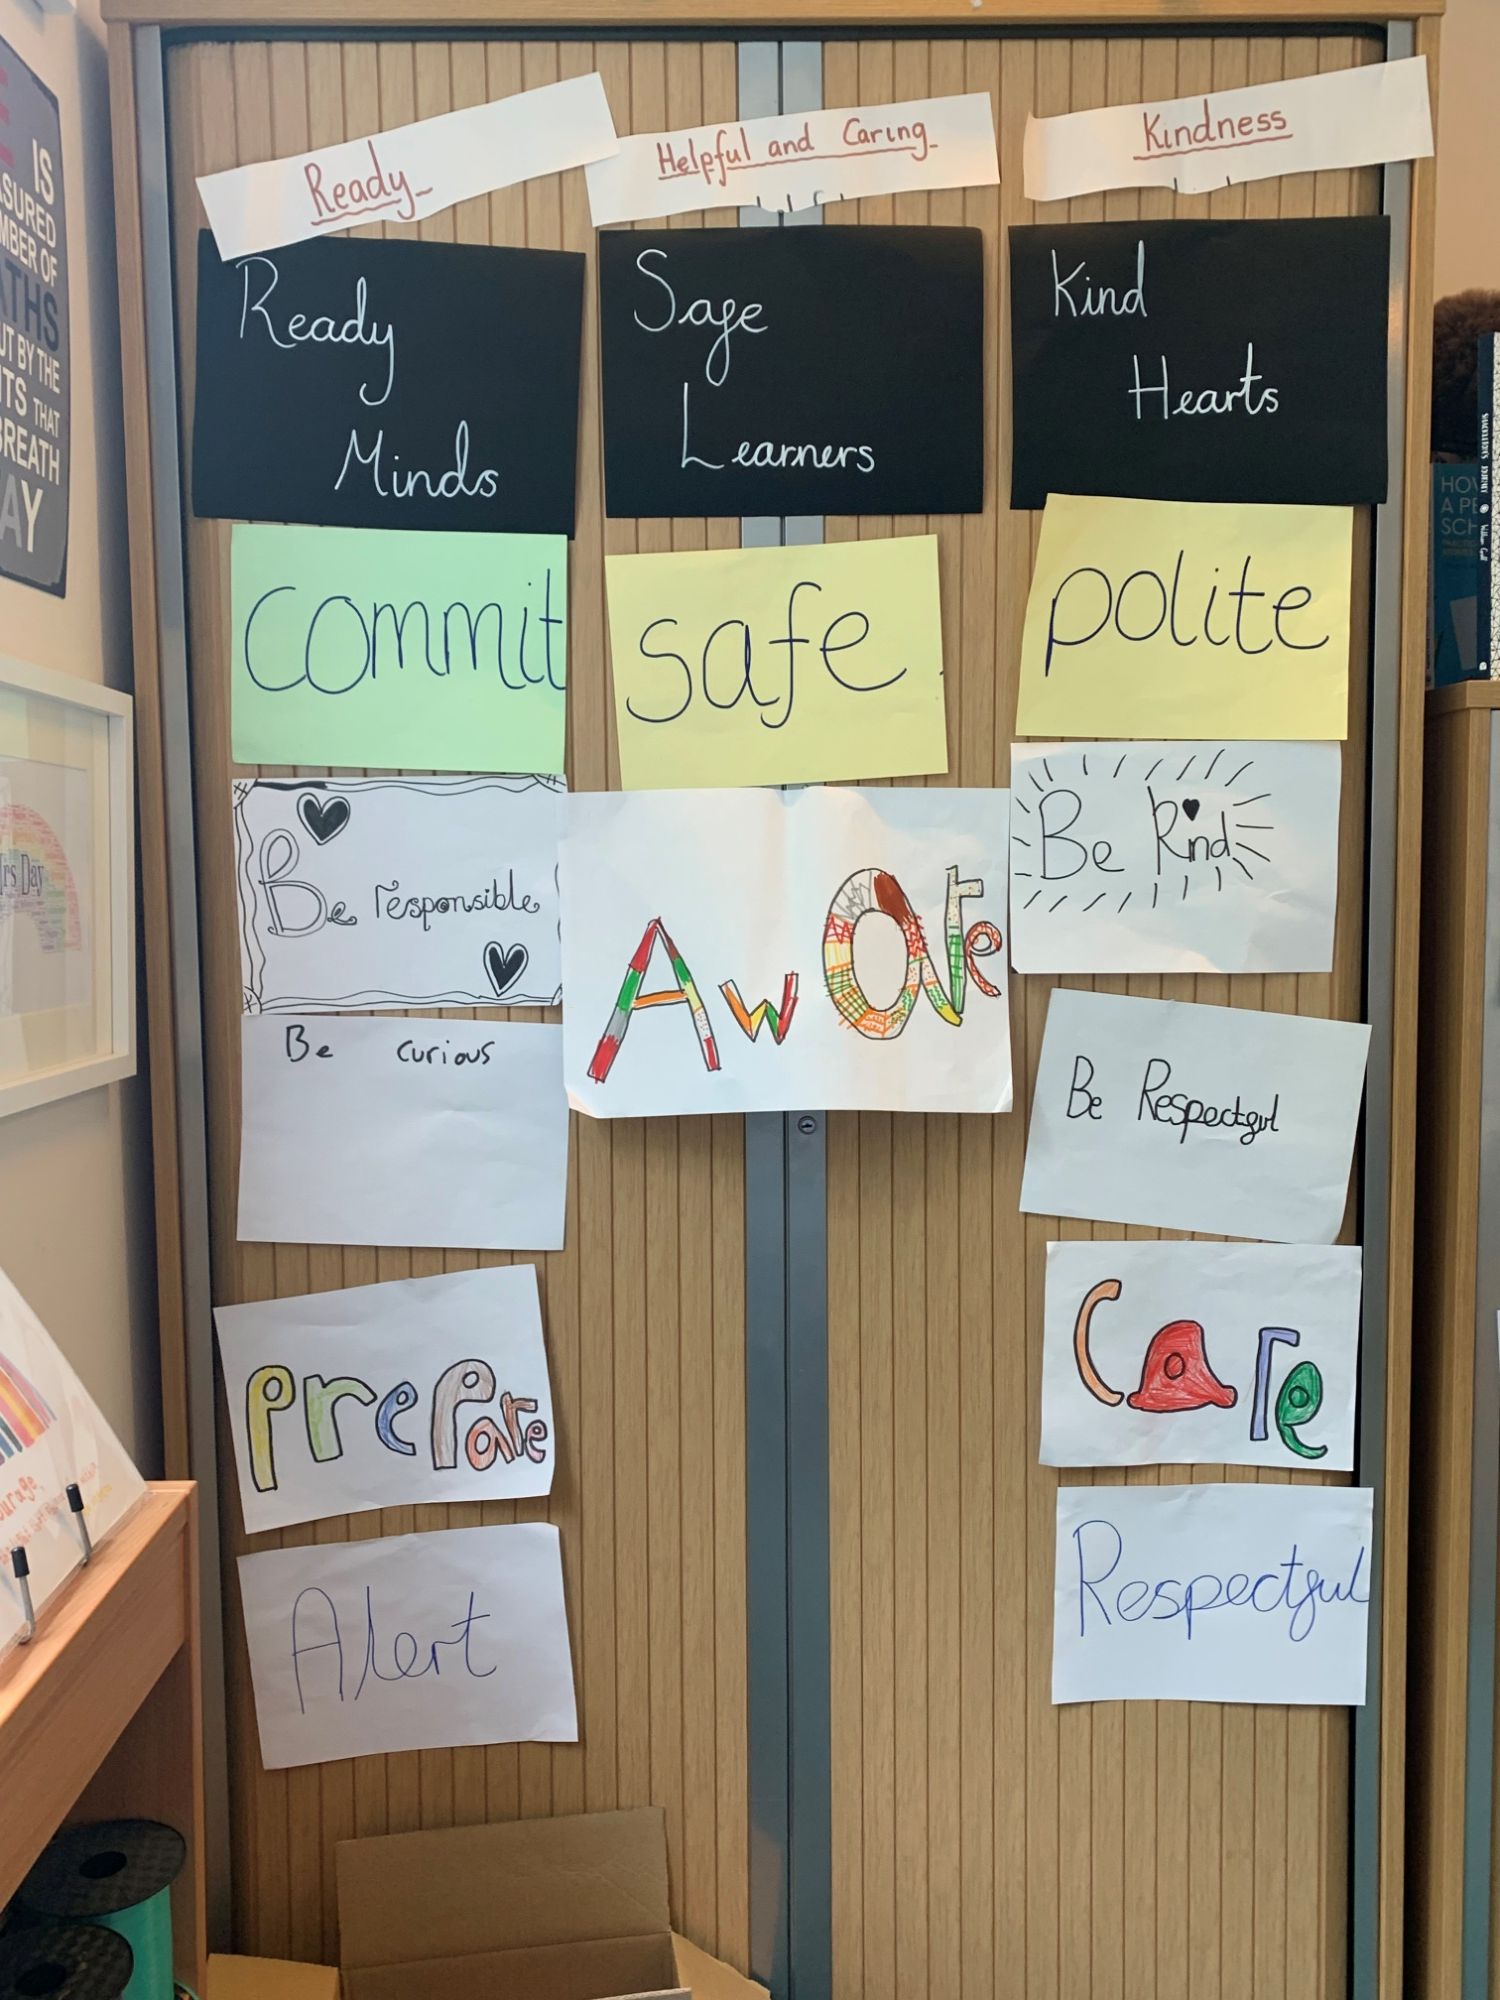 Ready
Helpful and Caring
Kindness
Ready
Minds
Safe
Learners
Kind
Hearts
commit
safe
polite
Be responsible
Aware
Be Kind
Be curious
Be Respectful
prePare
Care
Alert
Respectful
IS
MBER OF
BY THE
THAT
BREATH
Mrs Day
HOW
A PE
SCH